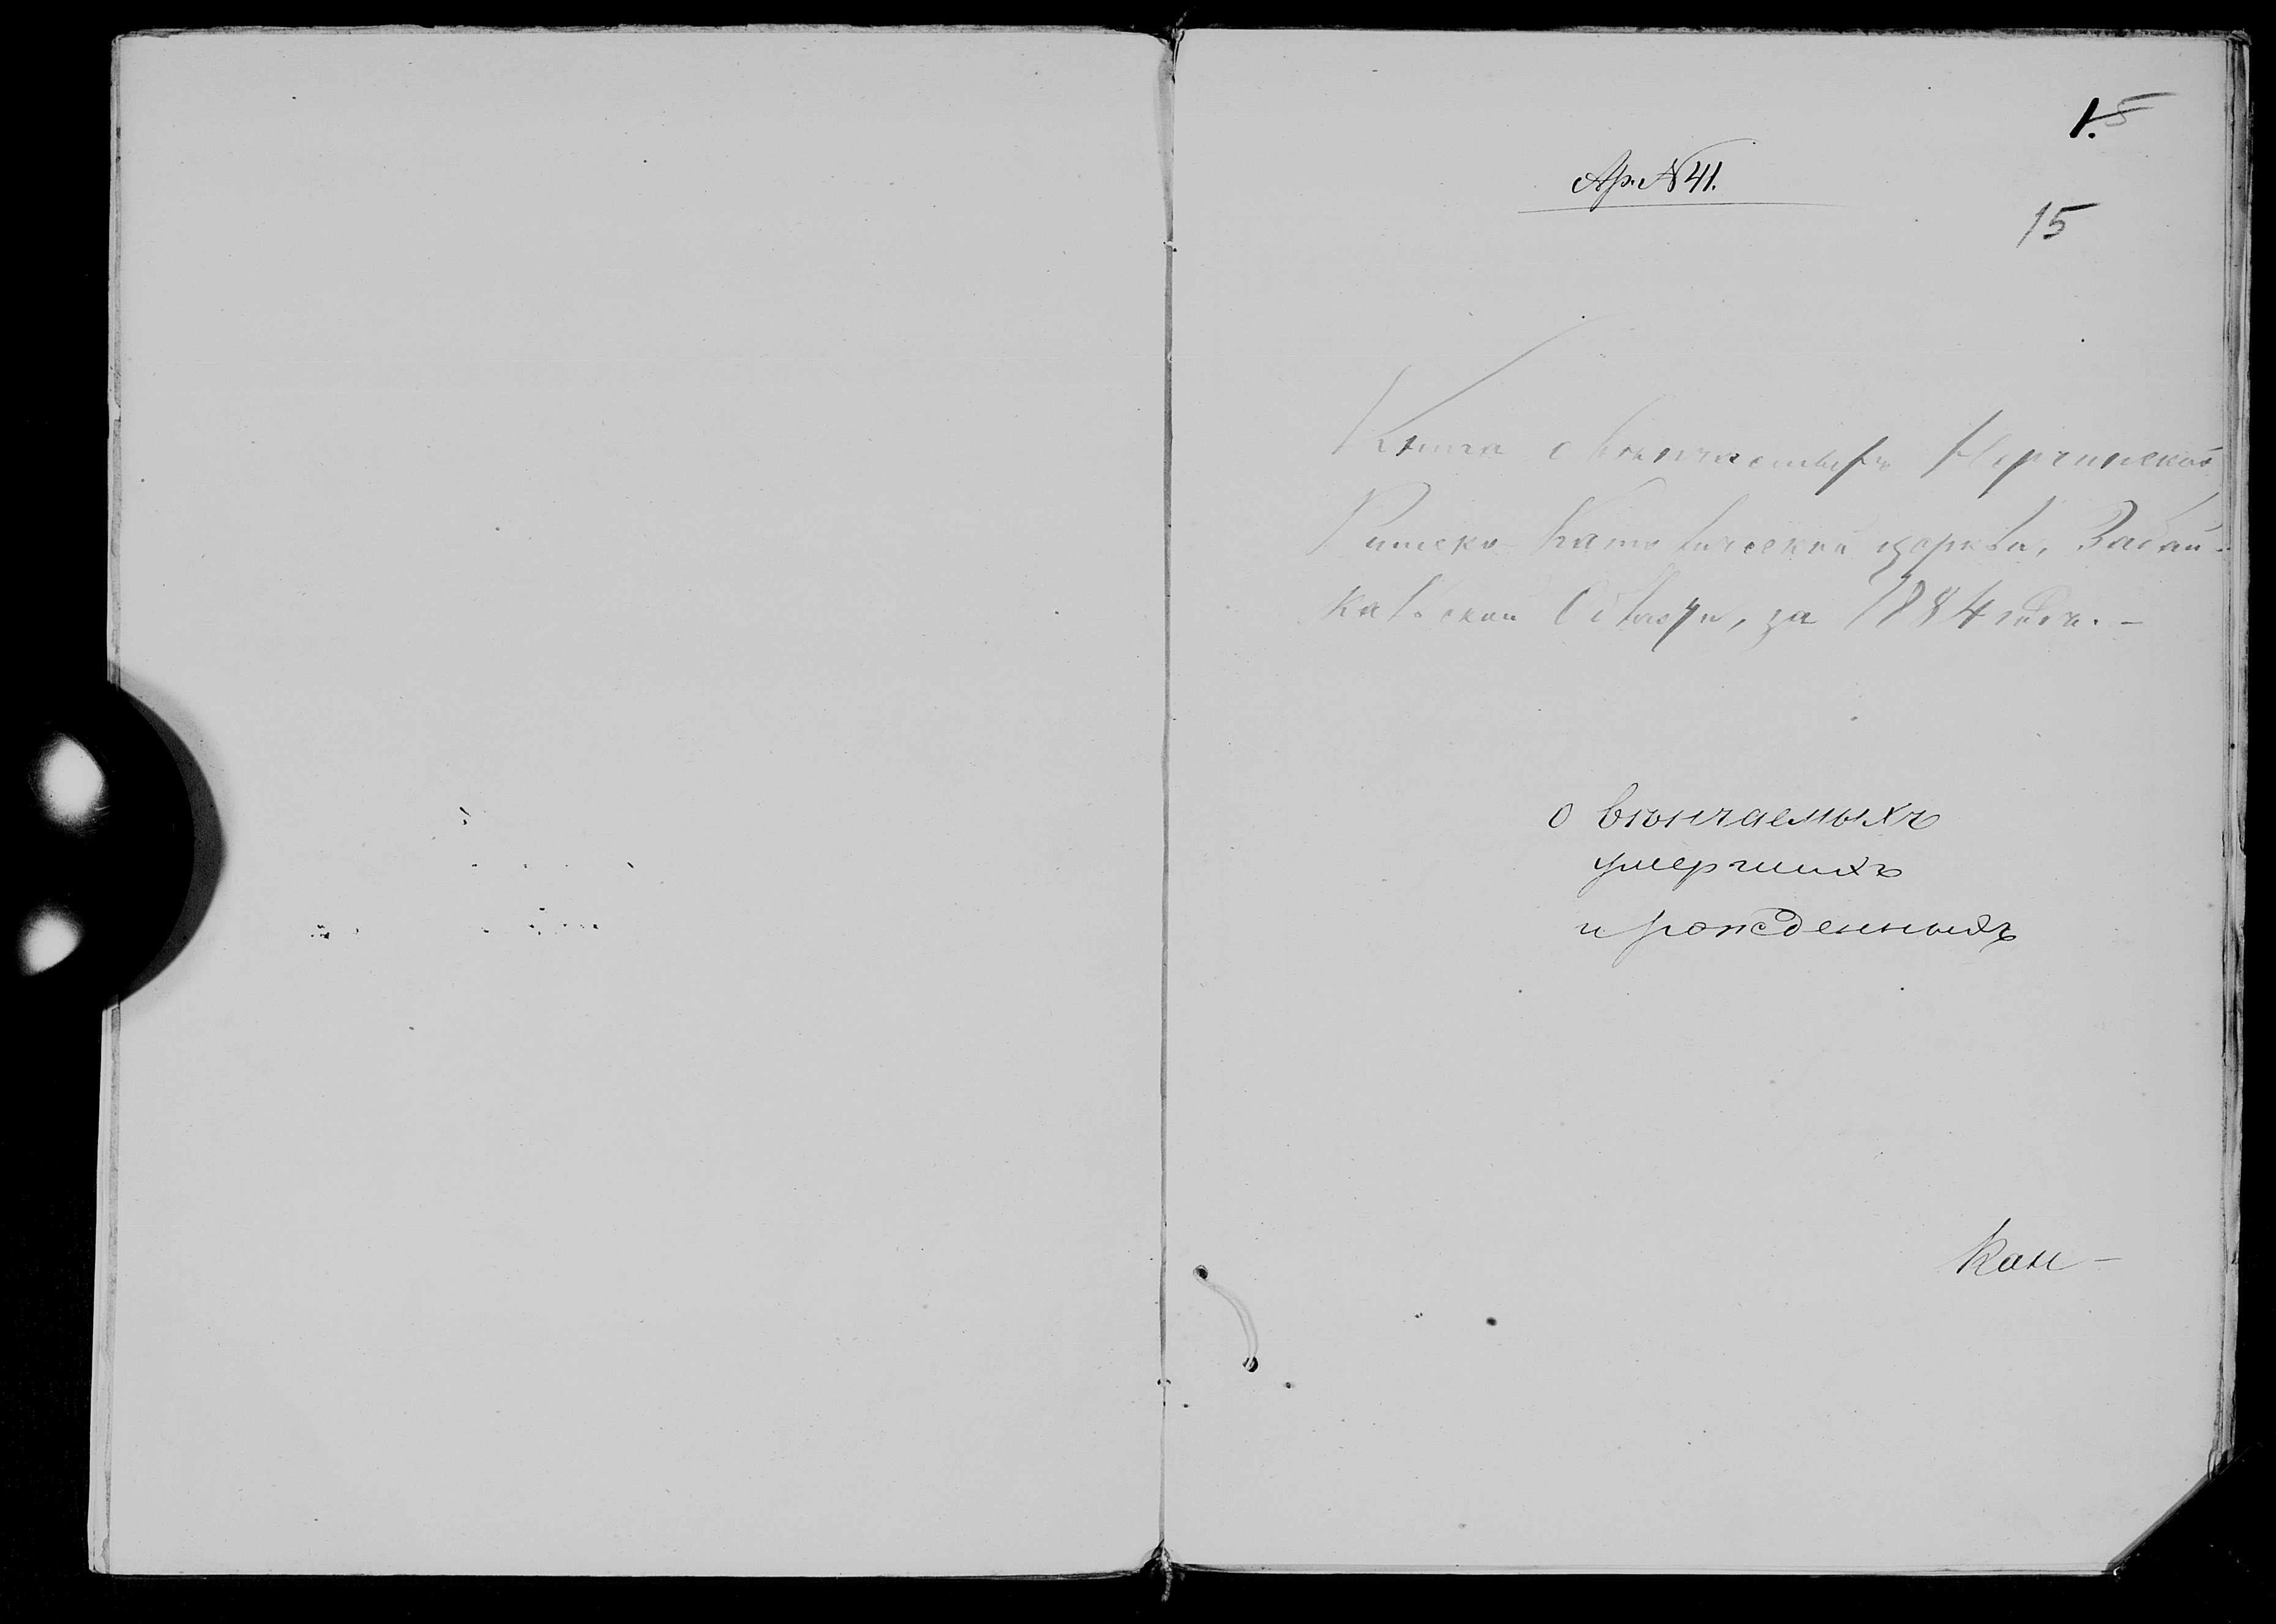 1.5
Ар. № 41.
15
Книга о вѣнчаемыхъ Нерчинской
Римско-Католической церкви, Забай-
кальской Области, за 1884 годъ. –
о вѣнчаемыхъ
умершихъ
и рожденныхъ
Кан –